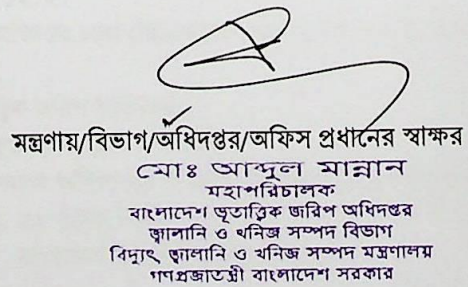 মন্ত্রণায়/বিভাগ/অধিদপ্তর/অফিস প্রধানের স্বাক্ষর
মোঃ আব্দুল মান্নান
মহাপরিচালক
বাংলাদেশ ভূতাত্ত্বিক জরিপ অধিদপ্তর
জ্বালানি ও খনিজ সম্পদ বিভাগ
বিদ্যুৎ, জ্বালানি ও খনিজ সম্পদ মন্ত্রণালয়
গণপ্রজাতন্ত্রী বাংলাদেশ সরকার